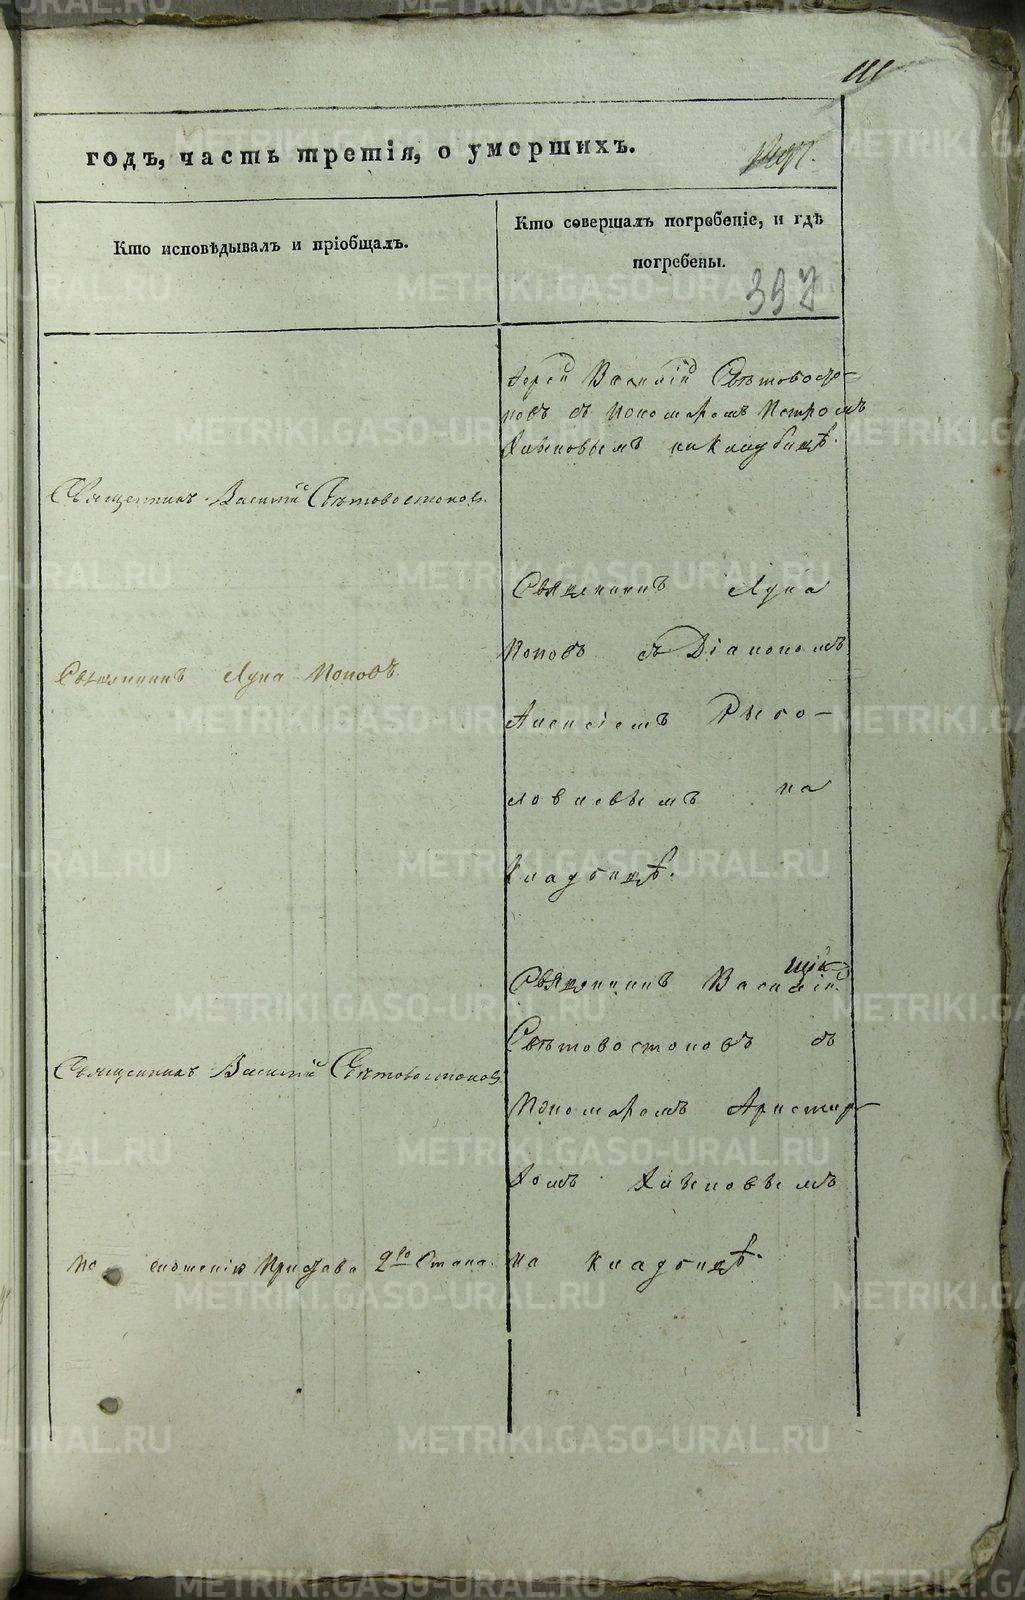 111
годъ, часть третія, о умершихъ.
Кто исповѣдывалъ и пріобщалъ.
Кто совершалъ погребеніе, и гдѣ
погребены.
397
Іерей Василій Свѣтовостро-
ковъ съ Пономаремъ Петромъ
на Кладбищѣ.
Священникъ Василій Свѣтовостоковъ.
Священникъ Лука
Поповъ съ Діакономъ
Алексіемъ Рысо-
ловскимъ на
Кладбищѣ.
Священникъ Лука Поповъ.
Священникъ Василій
Свѣтовостоковъ съ
Пономаремъ Аристар-
хомъ
на кладбищѣ.
Священникъ Василій Свѣтовостоковъ
По сношенію Пристава 2го Стана.
METRIKI.GASO-URAL.RU